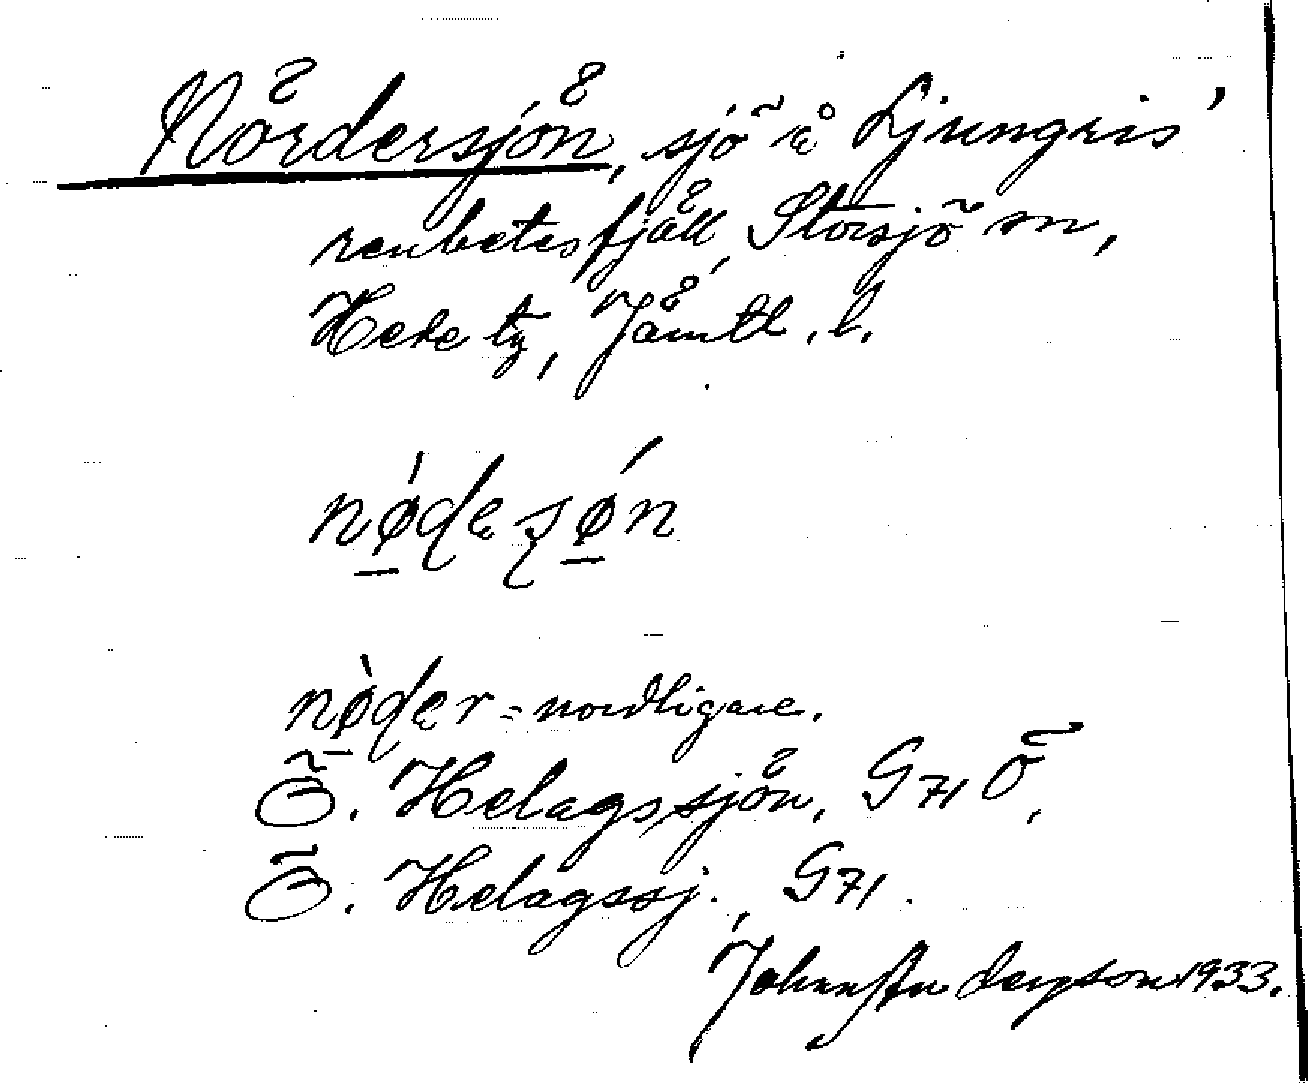 Nördersjön, sjö å Ljungris'
renbetesfjäll, Storsjö sn,
Hede tg, Jämtl. l.
nǿ̲deʂǿ̲n
nø̲̀der = nordligare.
Ö. Helagssjön, G71 Ö,
Ö. Helagssj., G71.
1933.